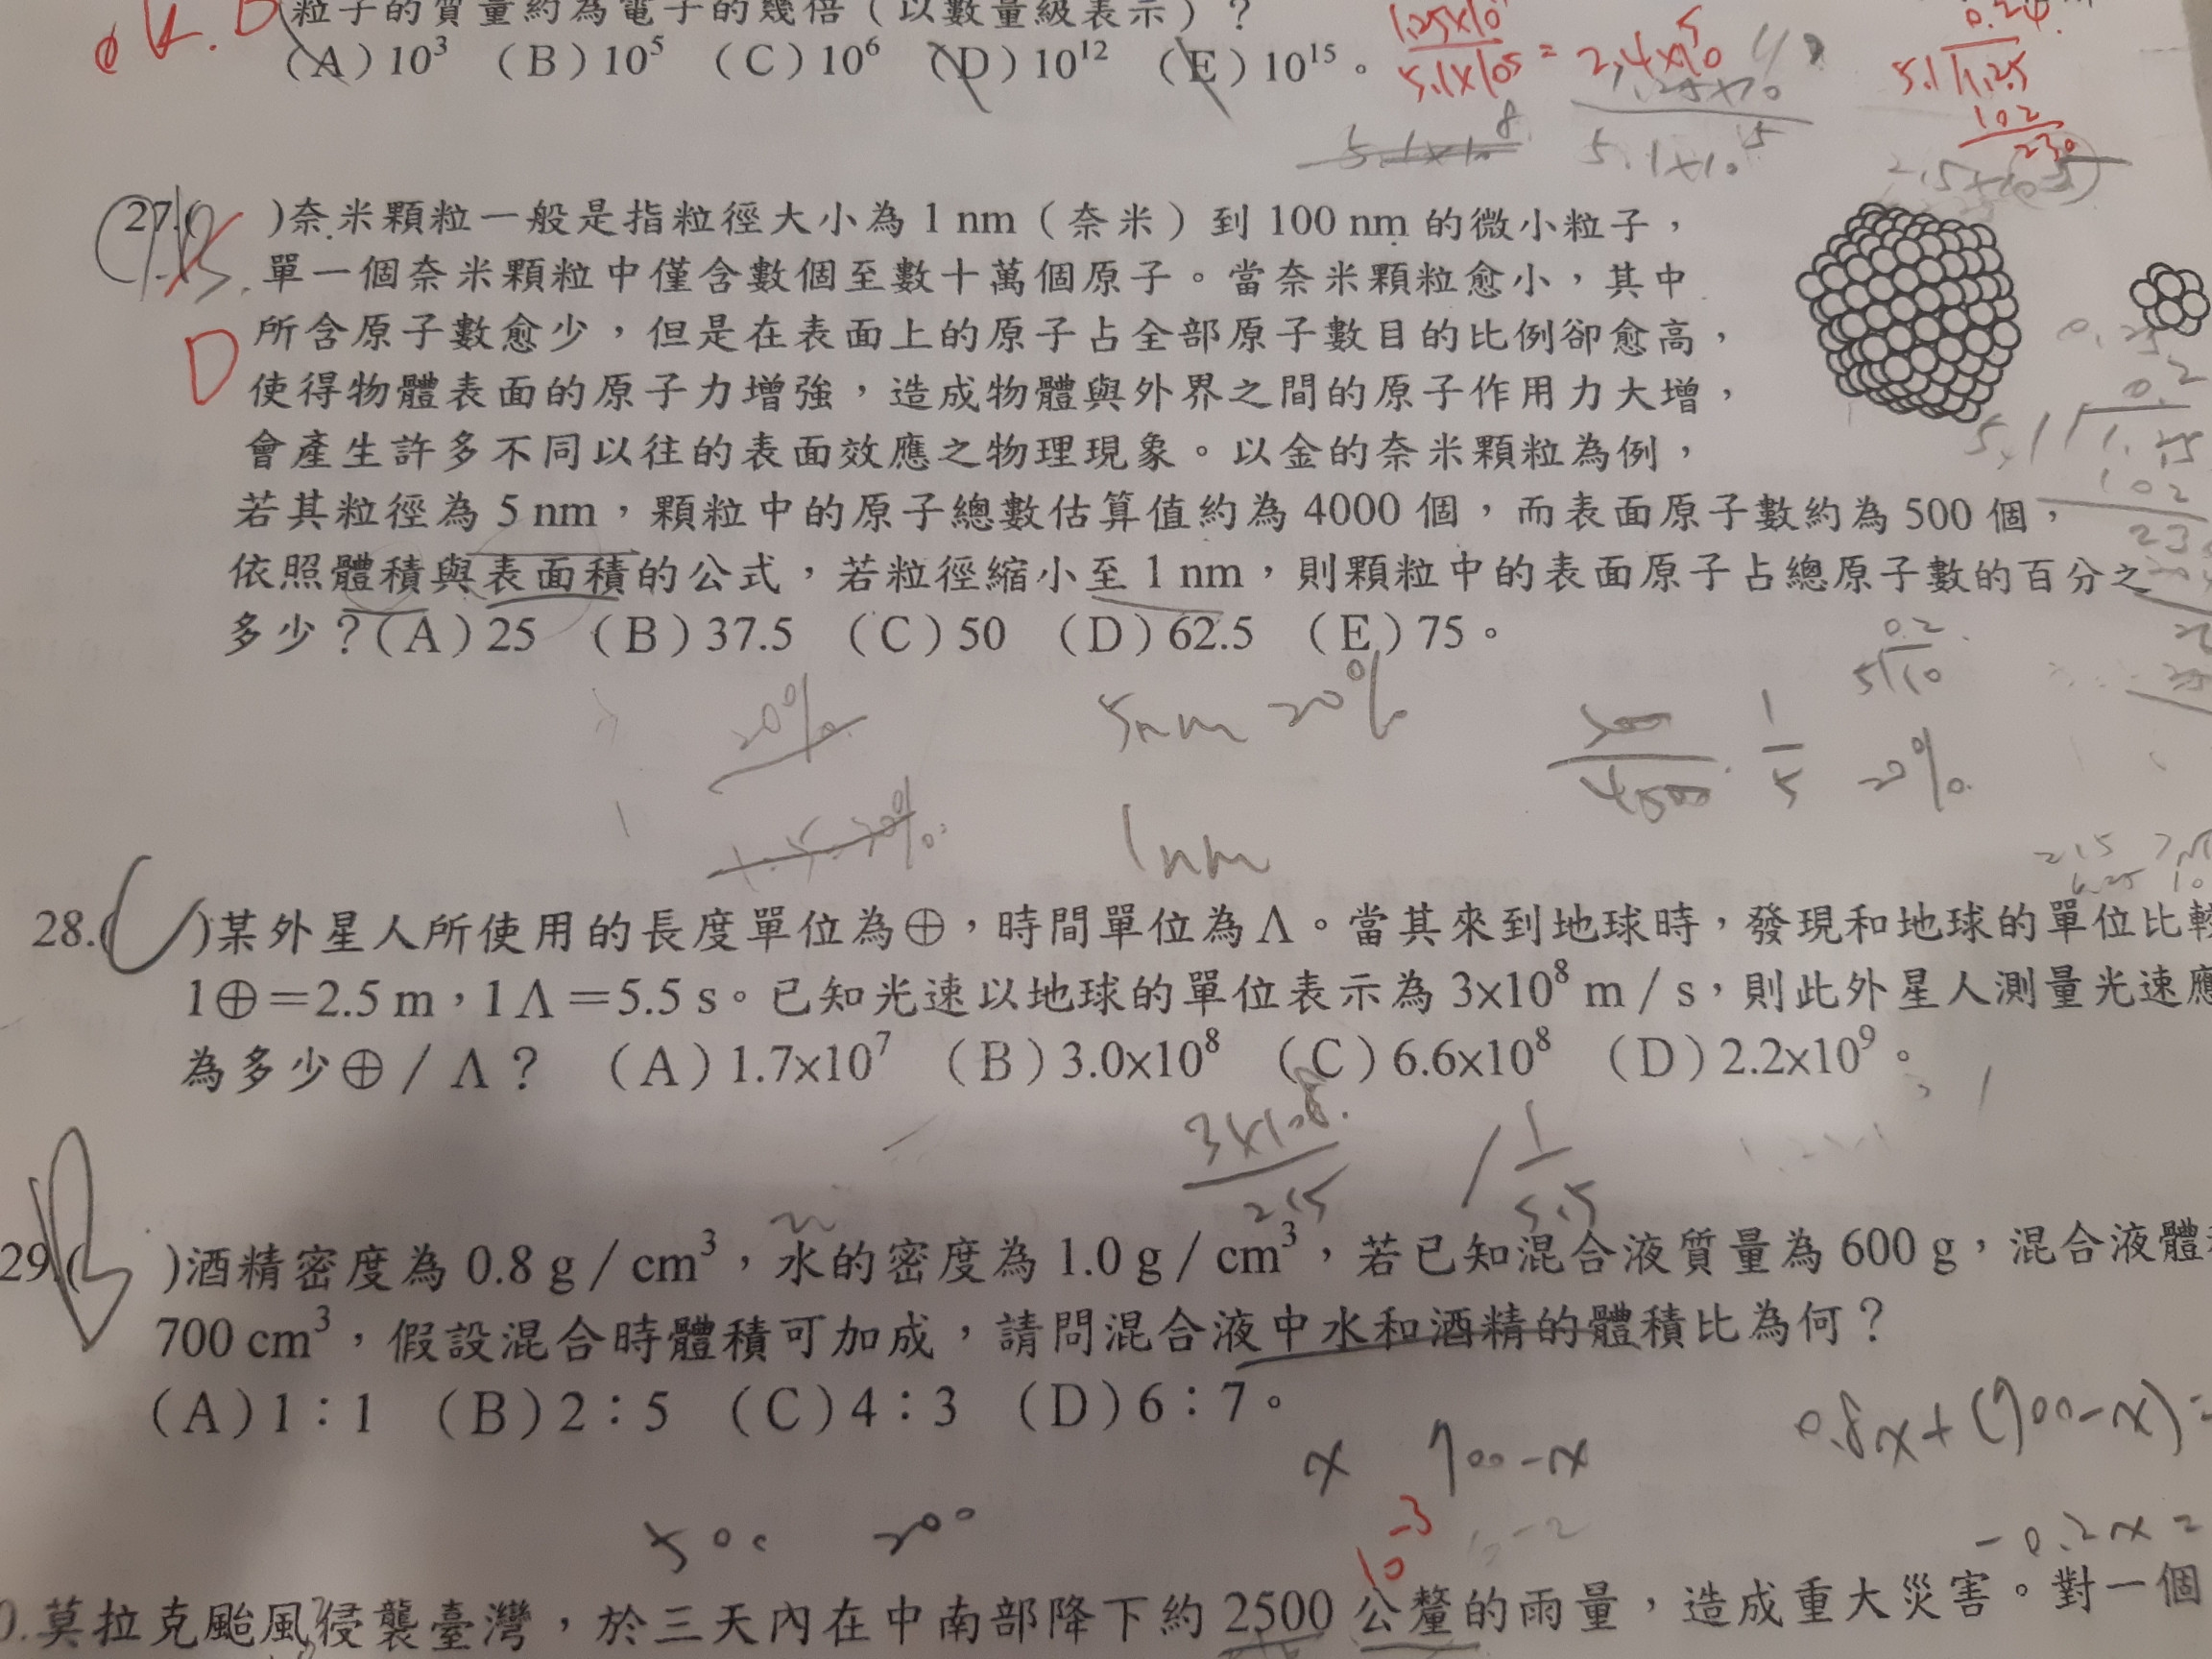 粒子的質量約為電子的幾倍（以數量級表示）？
（A）10³ （B）10⁵ （C）10⁶ （D）10¹² （E）10¹⁵。
27.( )奈米顆粒一般是指粒徑大小為 1 nm（奈米）到 100 nm 的微小粒子，
單一個奈米顆粒中僅含數個至數十萬個原子。當奈米顆粒愈小，其中
所含原子數愈少，但是在表面上的原子占全部原子數目的比例卻愈高，
D
使得物體表面的原子力增強，造成物體與外界之間的原子作用力大增，
會產生許多不同以往的表面效應之物理現象。以金的奈米顆粒為例，
若其粒徑為 5 nm，顆粒中的原子總數估算值約為 4000 個，而表面原子數約為 500 個，
依照體積與表面積的公式，若粒徑縮小至 1 nm，則顆粒中的表面原子占總原子數的百分之
多少？（A）25 （B）37.5 （C）50 （D）62.5 （E）75。
20%
5nm 20%
1/5 20%
1nm
28.( )某外星人所使用的長度單位為⊕，時間單位為Λ。當其來到地球時，發現和地球的單位比較
1⊕＝2.5 m，1Λ＝5.5 s。已知光速以地球的單位表示為 3x10⁸ m / s，則此外星人測量光速應
為多少⊕ / Λ？ （A）1.7x10⁷ （B）3.0x10⁸ （C）6.6x10⁸ （D）2.2x10⁹。
29.(B )酒精密度為 0.8 g / cm³，水的密度為 1.0 g / cm³，若已知混合液質量為 600 g，混合液體
700 cm³，假設混合時體積可加成，請問混合液中水和酒精的體積比為何？
（A）1：1 （B）2：5 （C）4：3 （D）6：7。
x 700-x
0.8x+(700-x)=
500 200
10⁻³
-0.2x=
莫拉克颱風侵襲臺灣，於三天內在中南部降下約 2500 公釐的雨量，造成重大災害。對一個